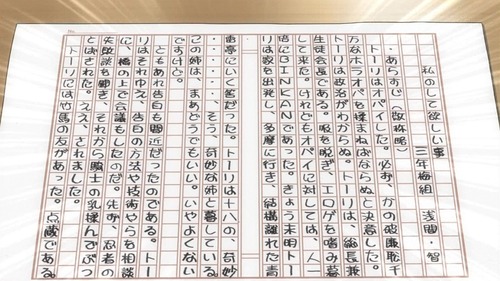 私のして欲しい事
三年梅組　浅間・智
・あらすじ（敬称略）
トーリはオパイした。必ず、かの破廉恥千
万なホラオパを揉まねばならぬと決意した。
トーリは政治がわからぬ。トーリは、総長兼
生徒会長である。服を脱ぎ、エロゲを嗜み暮
して来た。けれどもオパイに対しては、人一
倍にBINKANであった。きょう未明トー
リは家を出発し、多摩に行き、結構離れた青
雷亭にいく筈だった。トーリは十八の、奇妙
・・・・・・そう、奇妙な姉と暮している
この姉は、まあどうでもいい。いやよくない
ですけど。
ともあれ告白も間近だったのである。トー
リはそれゆえ、告白の方法や技術やらを相談
に、橋の上で会議もしたのだ。先ず、忍者の
失敗談を聞き、それから騎士の乳揉んでぶっ
とばされた。ええ、されました。
トーリには竹馬の友があった。点蔵である